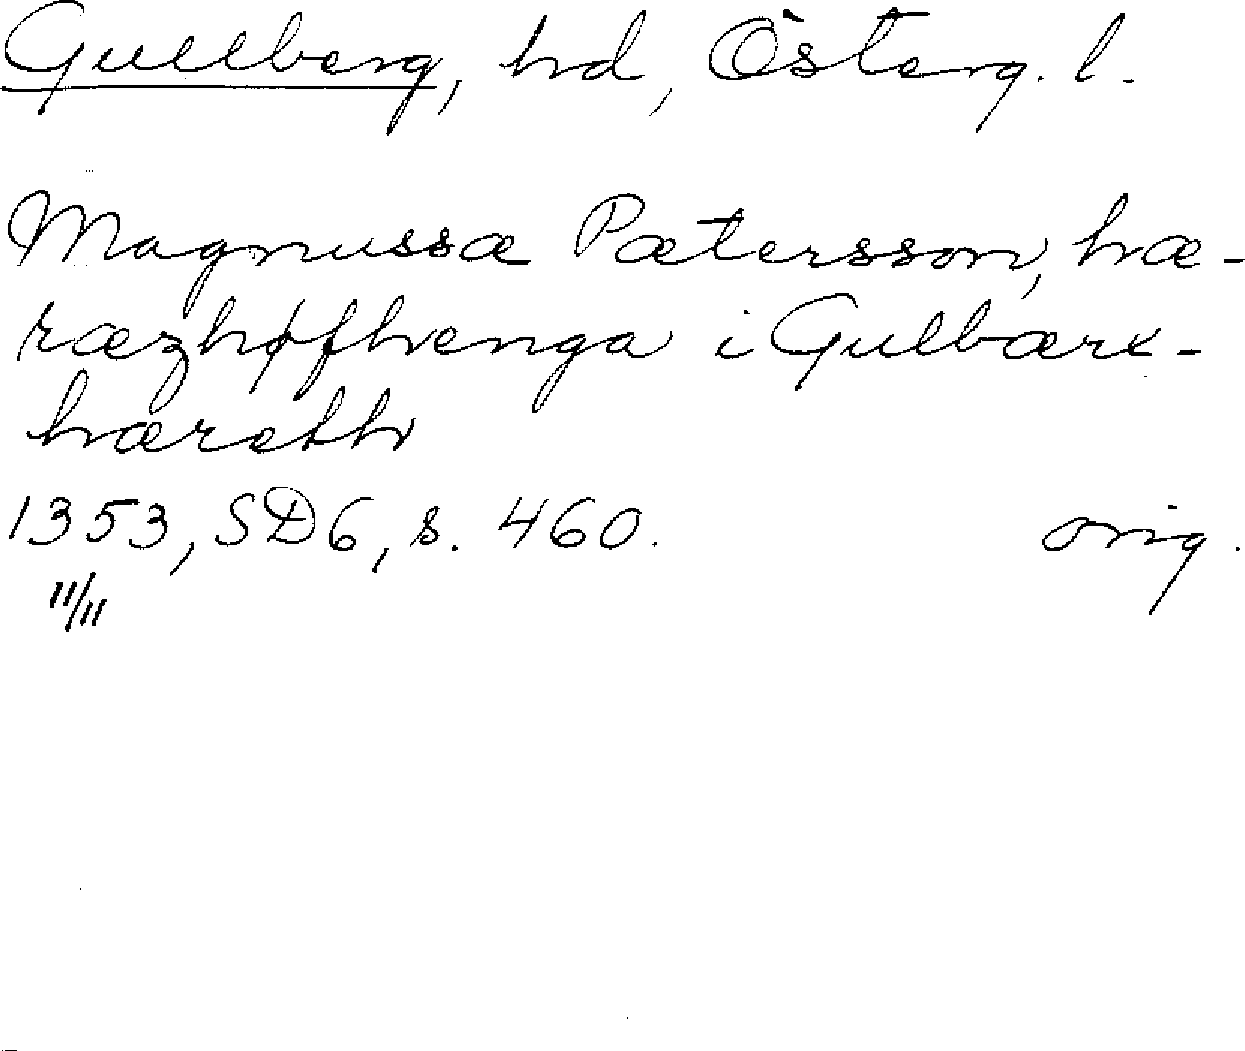 Gullberg, hd, Österg. l.
Magnussæ Pætersson, hæ-
ræzhøfhenga i Gulbærx-
hæreth
1353, SD6, s. 460. orig.
11/11